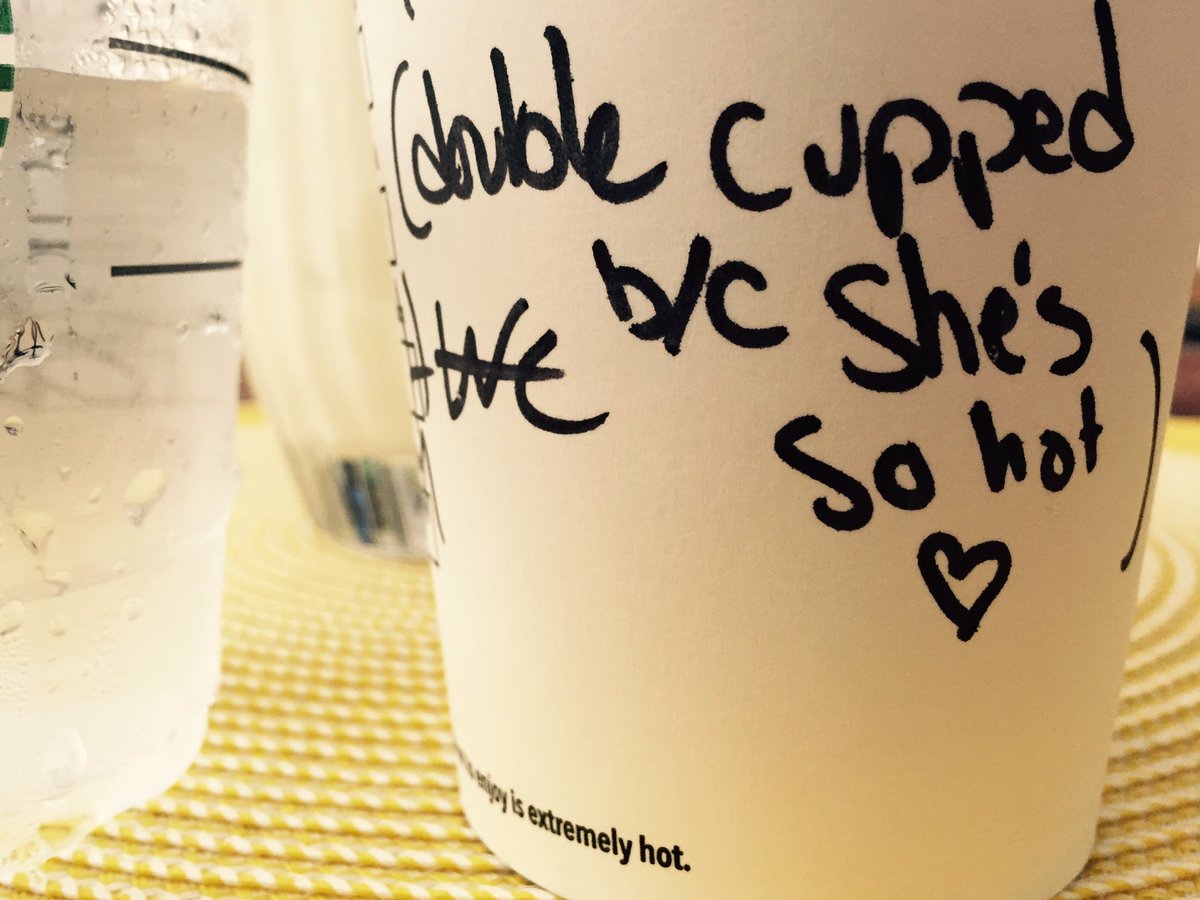 (double cupped
b/c she's
so hot
♡)
enjoy is extremely hot.